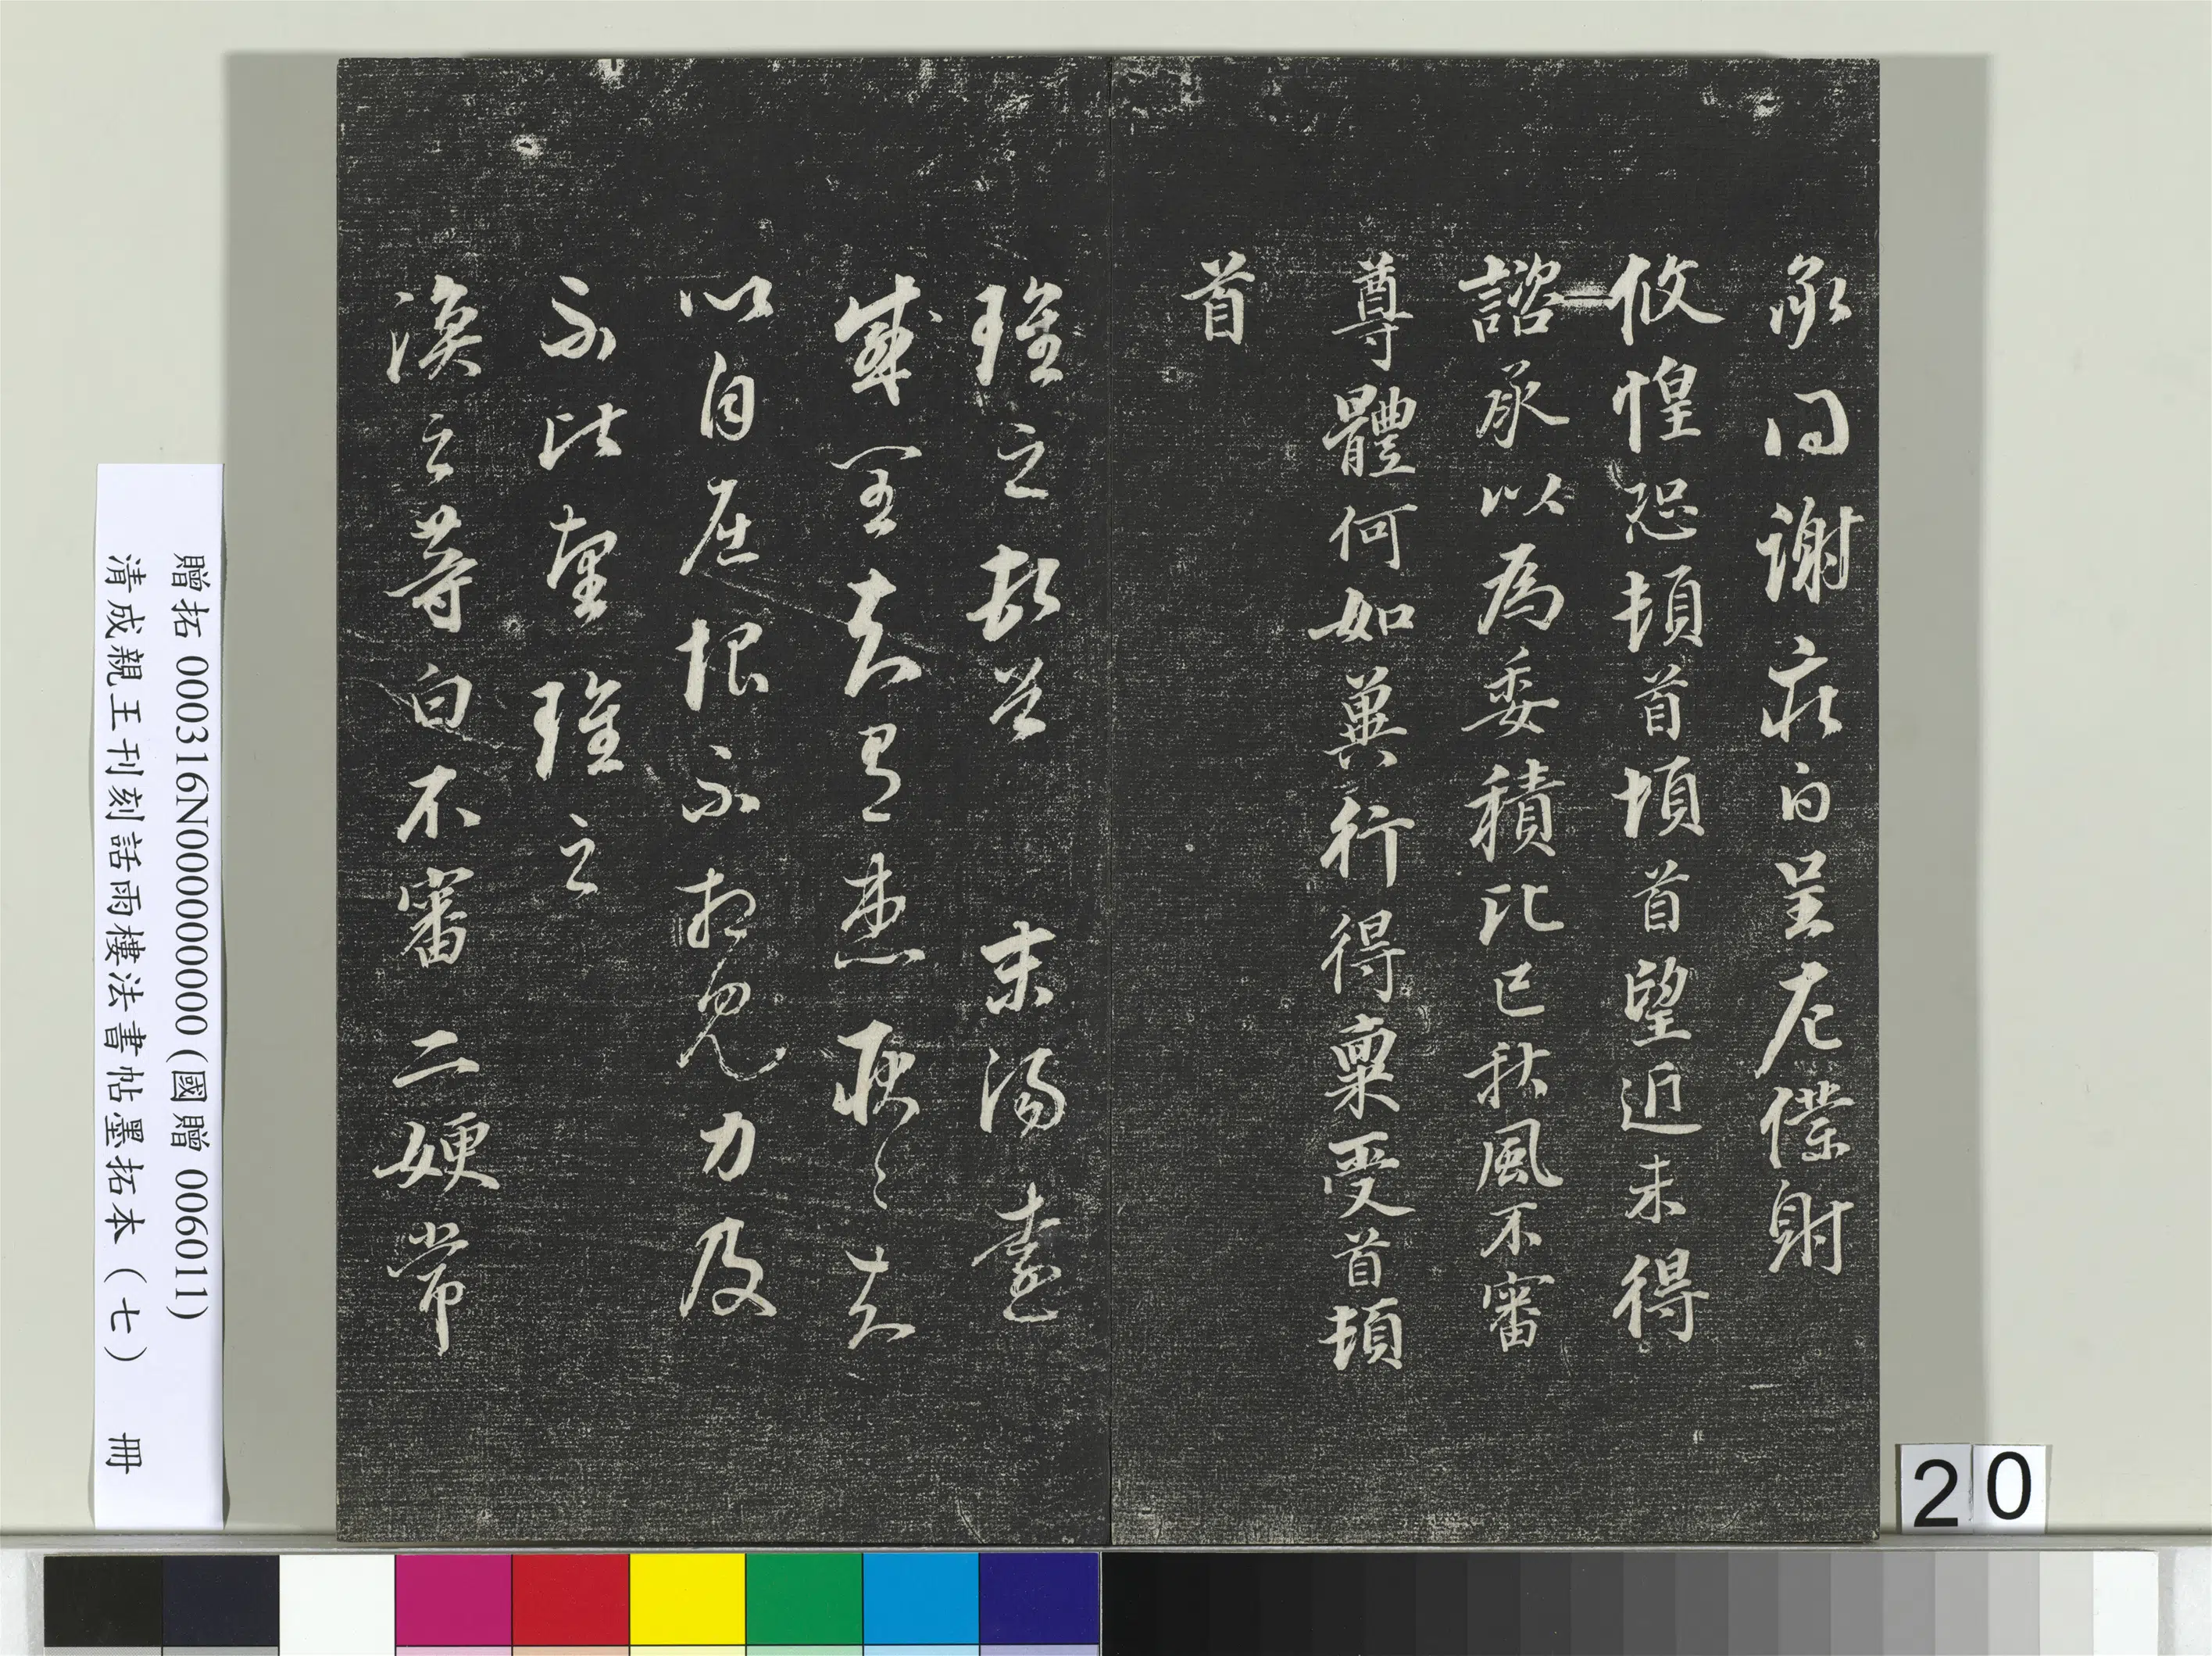 承問謝莊白呈左僕射
攸惶恐頓首頓首望近未得
諮承以為委積比已秋風不審
尊體何如冀行得稟受首頓
首
瓌之頓首 末陽遠
感閏夫可患耿〻夫
以自在恨不相見力及
不比望瓌之
渙之等白不審二嫂常
贈拓 000316N000000000 (國贈 006011)
清成親王刊刻話雨樓法書帖墨拓本(七) 冊
20